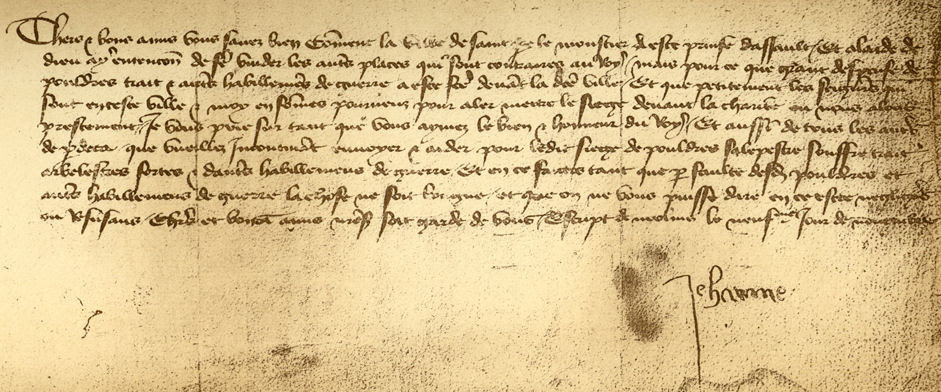 Chers & bons amis vous savez bien comment la ville de saint pere le moustier a este prinse dassault Et a laide de
dieu ay entencion de fe vuider les autres places qui sont contraires au Roy Mais pour ce que grant despense de
pouldres trait & autres habillemens de guerre a este fte devant la dte ville Et que petitement les seigneurs qui
sont en ceste ville & moy en sommes pourveuz pour aler mettre le siege devant la charite ou nous alons
prestement Je vous prie sur tant que vous aymez le bien & honneur du Roy Et aussi de tous les autres
de par deca que vueillez Incontinant envoyer & aider pour ledit siege de pouldres salepestre souffre trait
arbelestres fortes & dautres habillemens de guerre Et en ce faictes tant que par faulte desd pouldres et
autres habillemens de guerre la chose ne soit longue et que on ne vous puisse dire en ce estre negligens
ou Refusans Chers et bons amis nre sire soit garde de vous Escript a molins le neufme Jour de novembre
Jehanne